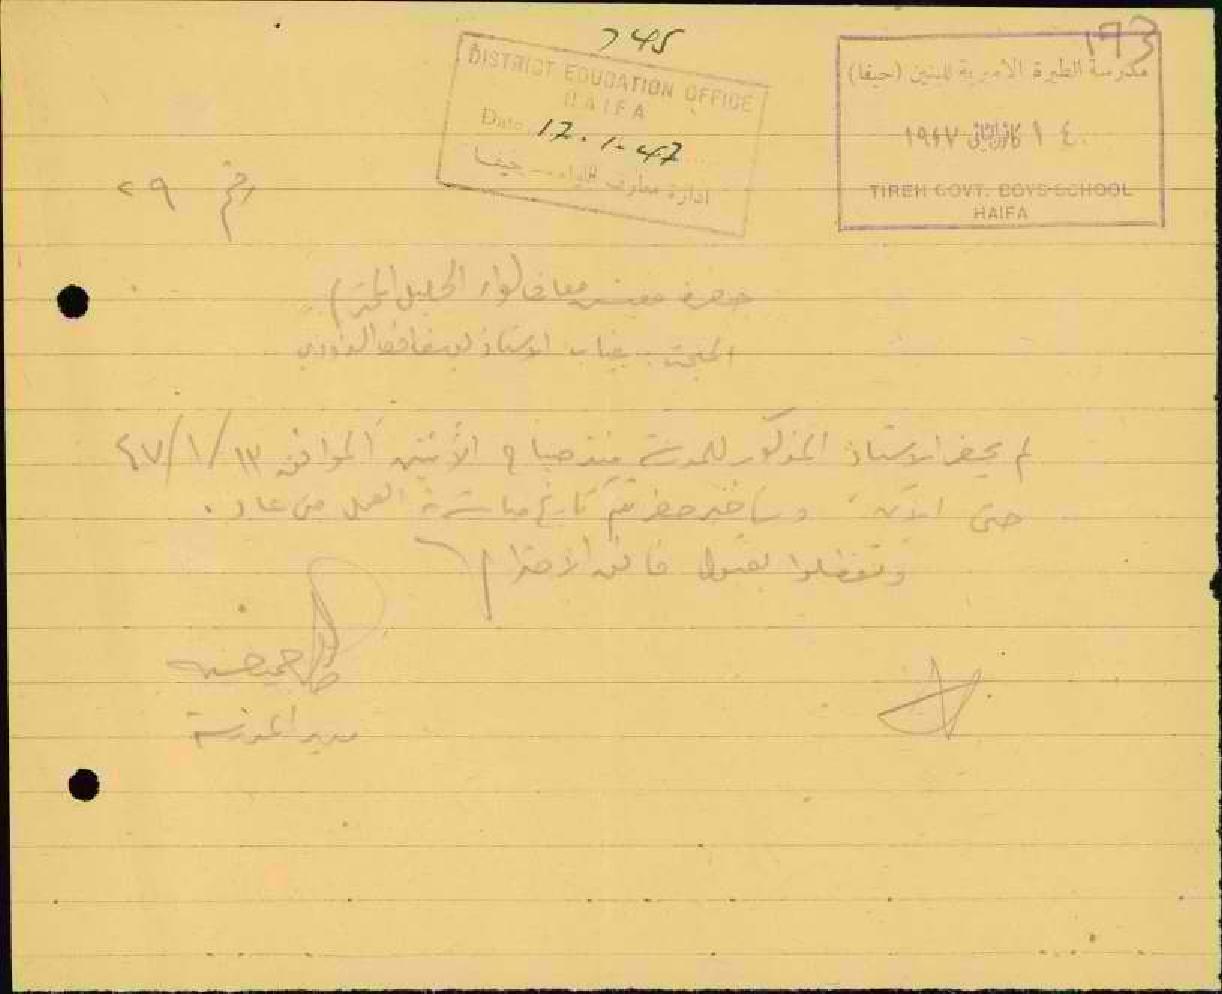 193
745
DISTRICT EDUCATION OFFICE
HAIFA
Date 17.1.47
ادارة معارف اللواء — حيفا
مدرسة الطيرة الاميرية للبنين (حيفا)
١٤ كانون الثاني ١٩٤٧
TIREH GOVT. BOYS SCHOOL
HAIFA
رقم ٢٩
حضرة مفتش معارف لواء الجليل المحترم
المبحث: غياب الاستاذ
لم يحضر الاستاذ المذكور للمدرسة منذ صباح الأثنين الموافق ١٣/١/٤٧
حتى الآن وسأخبر حضرتكم تاريخ مباشرة العمل متى عاد.
وتفضلوا بقبول فائق الاحترام
مدير المدرسة